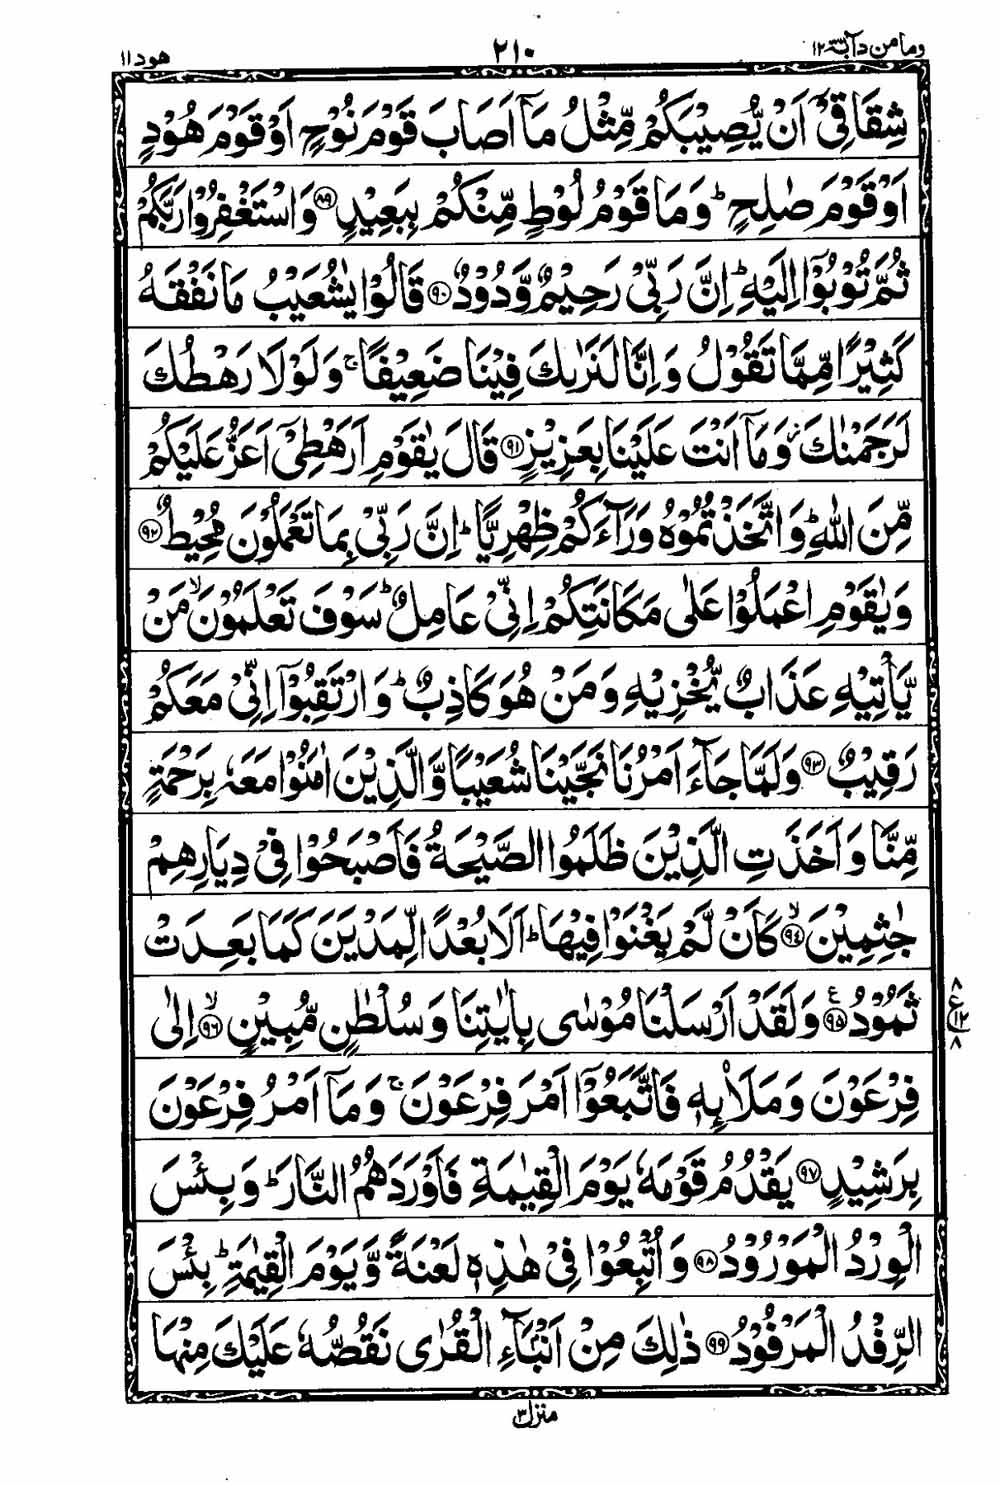 وما من دآبة ١٢
٢١٠
هود ١١
شِقَاقِیْۤ اَنْ یُّصِیْبَكُمْ مِّثْلُ مَاۤ اَصَابَ قَوْمَ نُوْحٍ اَوْ قَوْمَ هُوْدٍ
اَوْ قَوْمَ صٰلِحٍ ؕ وَ مَا قَوْمُ لُوْطٍ مِّنْكُمْ بِبَعِیْدٍ ﴿۸۹﴾ وَ اسْتَغْفِرُوْا رَبَّكُمْ
ثُمَّ تُوْبُوْۤا اِلَیْهِ ؕ اِنَّ رَبِّیْ رَحِیْمٌ وَّدُوْدٌ ﴿۹۰﴾ قَالُوْا یٰشُعَیْبُ مَا نَفْقَهُ
كَثِیْرًا مِّمَّا تَقُوْلُ وَ اِنَّا لَنَرٰىكَ فِیْنَا ضَعِیْفًا ۚ وَ لَوْ لَا رَهْطُكَ
لَرَجَمْنٰكَ ؗ وَ مَاۤ اَنْتَ عَلَیْنَا بِعَزِیْزٍ ﴿۹۱﴾ قَالَ یٰقَوْمِ اَرَهْطِیْۤ اَعَزُّ عَلَیْكُمْ
مِّنَ اللّٰهِ ؕ وَ اتَّخَذْتُمُوْهُ وَرَآءَكُمْ ظِهْرِیًّا ؕ اِنَّ رَبِّیْ بِمَا تَعْمَلُوْنَ مُحِیْطٌ ﴿۹۲﴾
وَ یٰقَوْمِ اعْمَلُوْا عَلٰی مَكَانَتِكُمْ اِنِّیْ عَامِلٌ ؕ سَوْفَ تَعْلَمُوْنَ ۙ مَنْ
یَّاْتِیْهِ عَذَابٌ یُّخْزِیْهِ وَ مَنْ هُوَ كَاذِبٌ ؕ وَ ارْتَقِبُوْۤا اِنِّیْ مَعَكُمْ
رَقِیْبٌ ﴿۹۳﴾ وَ لَمَّا جَآءَ اَمْرُنَا نَجَّیْنَا شُعَیْبًا وَّ الَّذِیْنَ اٰمَنُوْا مَعَهٗ بِرَحْمَةٍ
مِّنَّا وَ اَخَذَتِ الَّذِیْنَ ظَلَمُوا الصَّیْحَةُ فَاَصْبَحُوْا فِیْ دِیَارِهِمْ
جٰثِمِیْنَ ﴿ۙ۹۴﴾ كَاَنْ لَّمْ یَغْنَوْا فِیْهَا ؕ اَلَا بُعْدًا لِّمَدْیَنَ كَمَا بَعِدَتْ
ثَمُوْدُ ﴿۹۵﴾ ع وَ لَقَدْ اَرْسَلْنَا مُوْسٰی بِاٰیٰتِنَا وَ سُلْطٰنٍ مُّبِیْنٍ ﴿ۙ۹۶﴾ اِلٰی
٨ ع ١٢ ٨
فِرْعَوْنَ وَ مَلَاۡىِٕهٖ فَاتَّبَعُوْۤا اَمْرَ فِرْعَوْنَ ۚ وَ مَاۤ اَمْرُ فِرْعَوْنَ
بِرَشِیْدٍ ﴿۹۷﴾ یَقْدُمُ قَوْمَهٗ یَوْمَ الْقِیٰمَةِ فَاَوْرَدَهُمُ النَّارَ ؕ وَ بِئْسَ
الْوِرْدُ الْمَوْرُوْدُ ﴿۹۸﴾ وَ اُتْبِعُوْا فِیْ هٰذِهٖ لَعْنَةً وَّ یَوْمَ الْقِیٰمَةِ ؕ بِئْسَ
الرِّفْدُ الْمَرْفُوْدُ ﴿۹۹﴾ ذٰلِكَ مِنْ اَنْۢبَآءِ الْقُرٰی نَقُصُّهٗ عَلَیْكَ مِنْهَا
منزل ٣